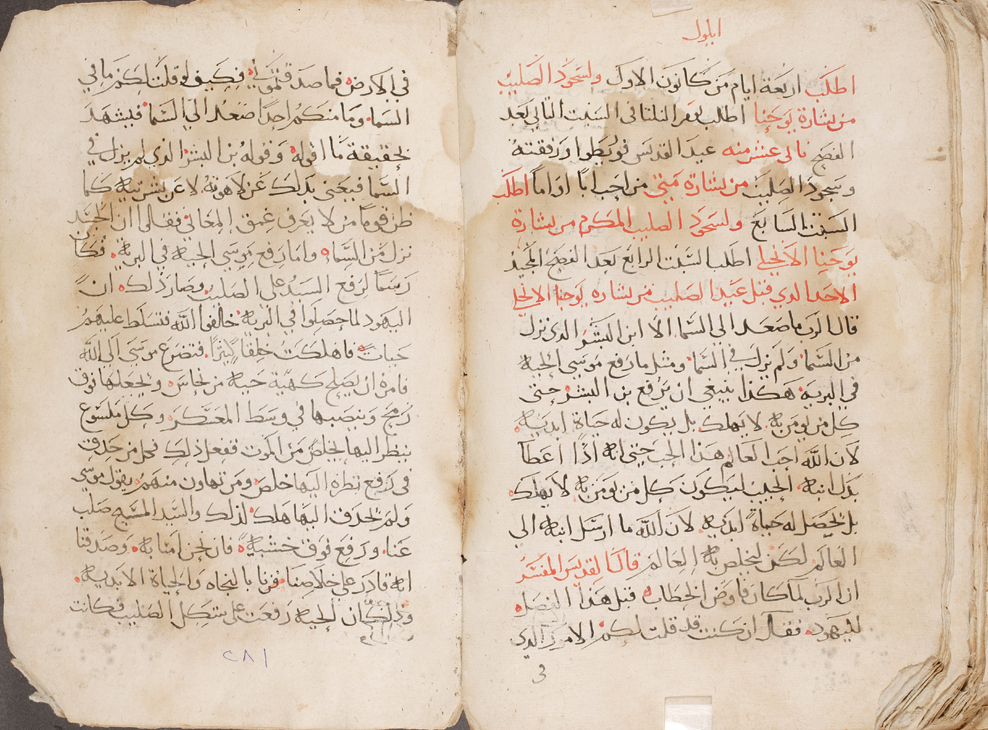 ايلول
اطلب اربعة ايام من كانون الاول ولسجود الصليب
من بشارة يوحنا اطلب يوم الثلثا في السبت الثاني بعد
الفصح ثاني عشر منه عيد القديس ورفقته
وسجود الصليب من بشارة متى من احب ابا او اما اطلب
السبت السابع ولسجود الصليب المكرم من بشارة
يوحنا الانجلي اطلب السبت الرابع بعد الفصح المجيد
الاحد الدي قبل عيد الصليب من بشاره يوحنا الانجلي
قال الرب ما صعد الي السما الا ابن البشر الدي نزل
من السما ولم يزل في السما ومثل ما رفع موسى الحيه
في البريه هكذا ينبغي ان يرفع بن البشر حتى
كل من يومن به لا يهلك بل يكون له حياة ابديه
لان الله احب العالم هذا الحب حتى انه اذا اعطا
بدل ابنه الحبيب ليكون كل من يومن به لا يهلك
بل تحصل له حياة ابديه لان الله ما ارسل ابنه الي
العالم لكن ليخلص به العالم قال القديس المفسر
ان الرب لما كان فاوض الخطاب قبل هذا الفصل
لليهود فقال ان كنت قد قلت لكم الامور الدي
3
في الارض فما صدقتموني فكيف لو قلت لكم ما في
السما وما منكم احدا صعد الي السما فيشهد
بحقيقة ما اقوله وقوله بن البشر الدي لم يزل في
السما فيعني بدلك عن لاهوته لا عن بشريته كما
ظن قوما من لا يعرف عمق المعاني فقال ان الجسد
نزل من السما وانما رفع موسى الحية في البريه فكا
رسما لرفع السيد على الصليب وصار ذلك ان
اليهود لما حصلوا في البريه خالفوا الله فتسلط عليهم
حيات فاهلكت خلقا كثيرا فتضرع موسى الى الله
فامره ان يصلح كهية حية من نحاس ويجعلها فوق
رمح وينصبها في وسط المعسكر وكل ملسوع
ينظر اليها يخلص من الموت ففعل ذلك فكل من حدق
في رفع نظره اليها خلص ومن تهاون منهم بقول موسى
ولم يحدق اليها هلك لذلك والسيد المسيح صلب
عنا ورفع فوق خشبة فان نحن امنا به وصدقنا
انه قادر على خلاصنا فزنا بالنجاه والحياة الابديه
وذلك كان الحية رفعت على شكل الصليب فكانت
٢٨١